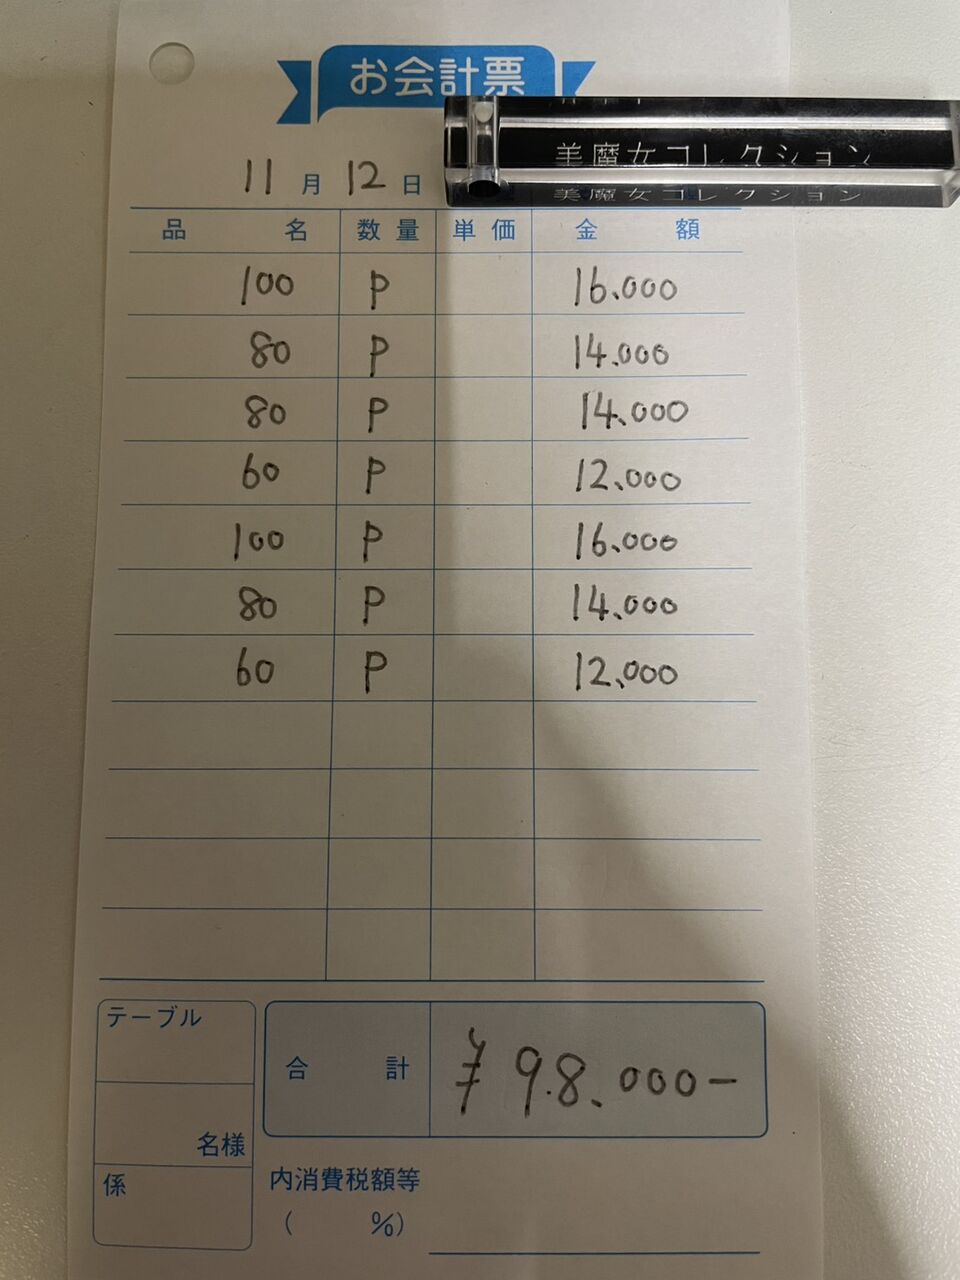 お会計票
美魔女コレクション
美魔女コレクション
11月12日
品名 数量 単価 金額
100 P 16.000
80 P 14.000
80 P 14.000
60 P 12.000
100 P 16.000
80 P 14.000
60 P 12.000
テーブル
合計 ¥98.000-
名様
係
内消費税額等
( %)